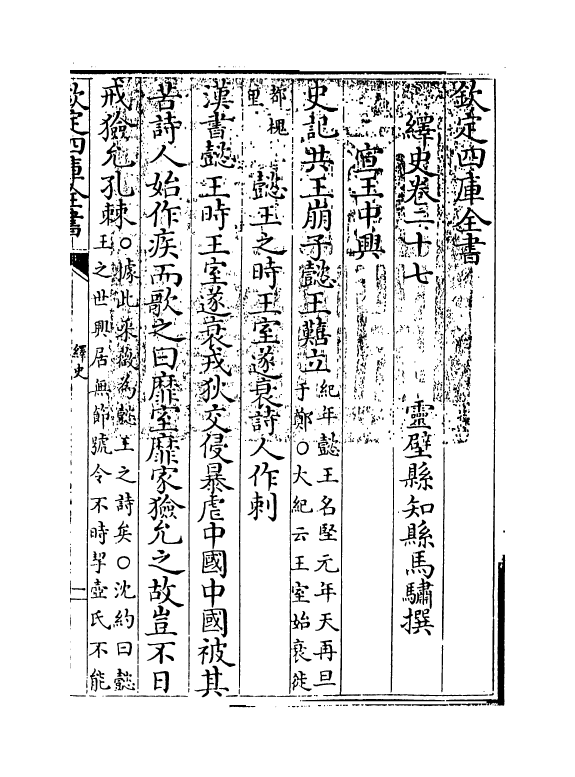 欽定四庫全書
繹史卷二十七
靈壁縣知縣馬驌撰
宣王中興
史記共王崩子懿王囏立紀年懿王名堅元年天再旦
于鄭○大紀云王室始衰徙
都槐
里
懿王之時王室遂衰詩人作刺
漢書懿王時王室遂衰戎狄交侵暴虐中國中國被其
苦詩人始作疾而歌之曰靡室靡家獫允之故豈不日
戒獫允孔棘○據此采薇為懿王之詩矣○沈約曰懿
王之世興居無節號令不時挈壺氏不能
欽定四庫全書
繹史
一